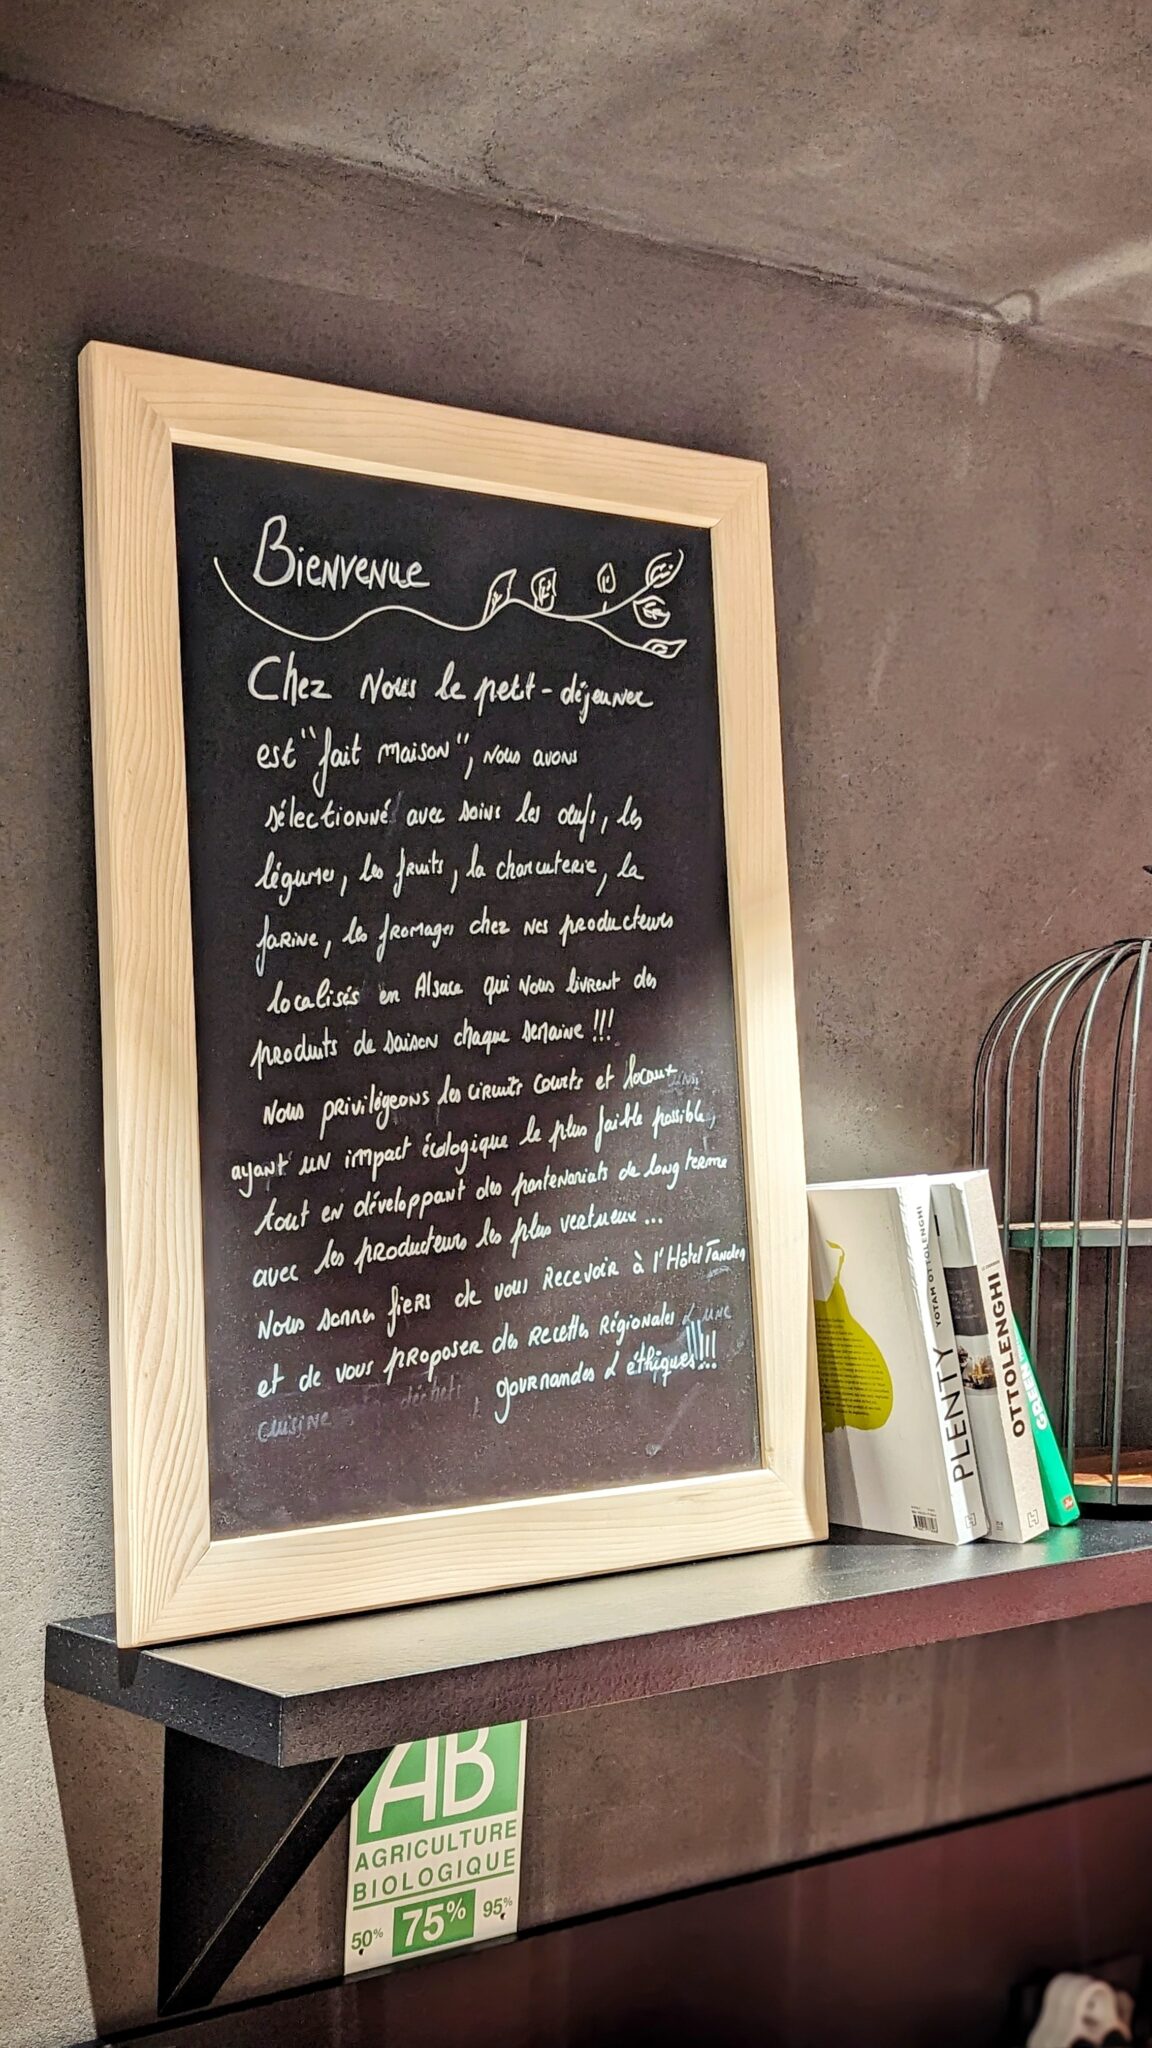 Bienvenue
Chez Nous le petit-déjeuner
est "fait maison", nous avons
sélectionné avec soins les œufs, les
légumes, les fruits, la charcuterie, la
farine, les fromages chez nos producteurs
localisés en Alsace qui nous livrent des
produits de saison chaque semaine !!!
Nous privilégeons les circuits courts et locaux
ayant un impact écologique le plus faible possible,
tout en développant des partenariats de long terme
avec les producteurs les plus vertueux...
Nous sommes fiers de vous recevoir à l'Hôtel Tandem
et de vous proposer des recettes Régionales
gourmandes & éthiques!!!!!
cuisine
PLENTY YOTAM OTTOLENGHI
OTTOLENGHI
GREEN
AB
AGRICULTURE
BIOLOGIQUE
50% 75% 95%